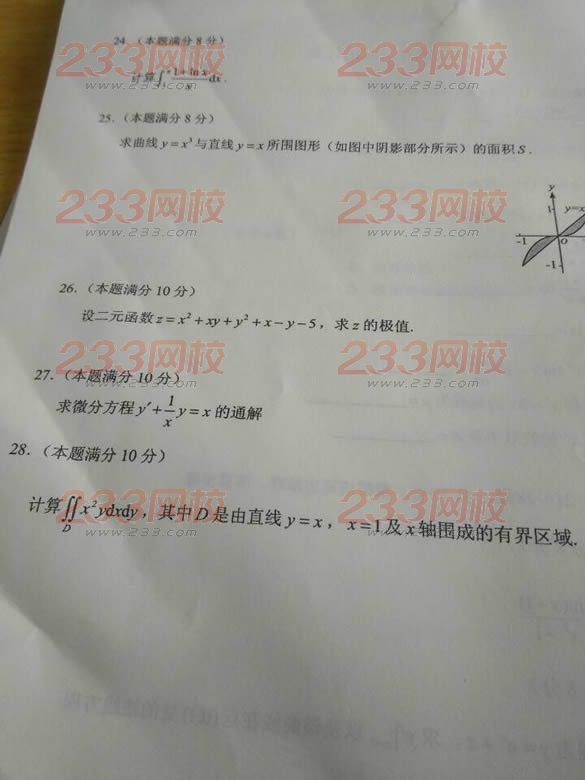 24. (本题满分 8 分)
计算∫ (1+ln x)/x dx.
25. (本题满分 8 分)
求曲线 y=x³与直线 y=x 所围图形 (如图中阴影部分所示) 的面积 S.
y
1
y=x
-1
O
-1
26. (本题满分 10 分)
设二元函数 z=x²+xy+y²+x-y-5, 求 z 的极值.
27. (本题满分 10 分)
求微分方程 y′+1/x y=x 的通解
28. (本题满分 10 分)
计算∬x²ydxdy, 其中 D 是由直线 y=x, x=1 及 x 轴围成的有界区域.
D
233网校
www.233.com
233网校
www.233.com
233网校
www.233.com
233网校
www.233.com
233网校
www.233.com
233网校
www.233.com
233网校
www.233.com
233网校
www.233.com